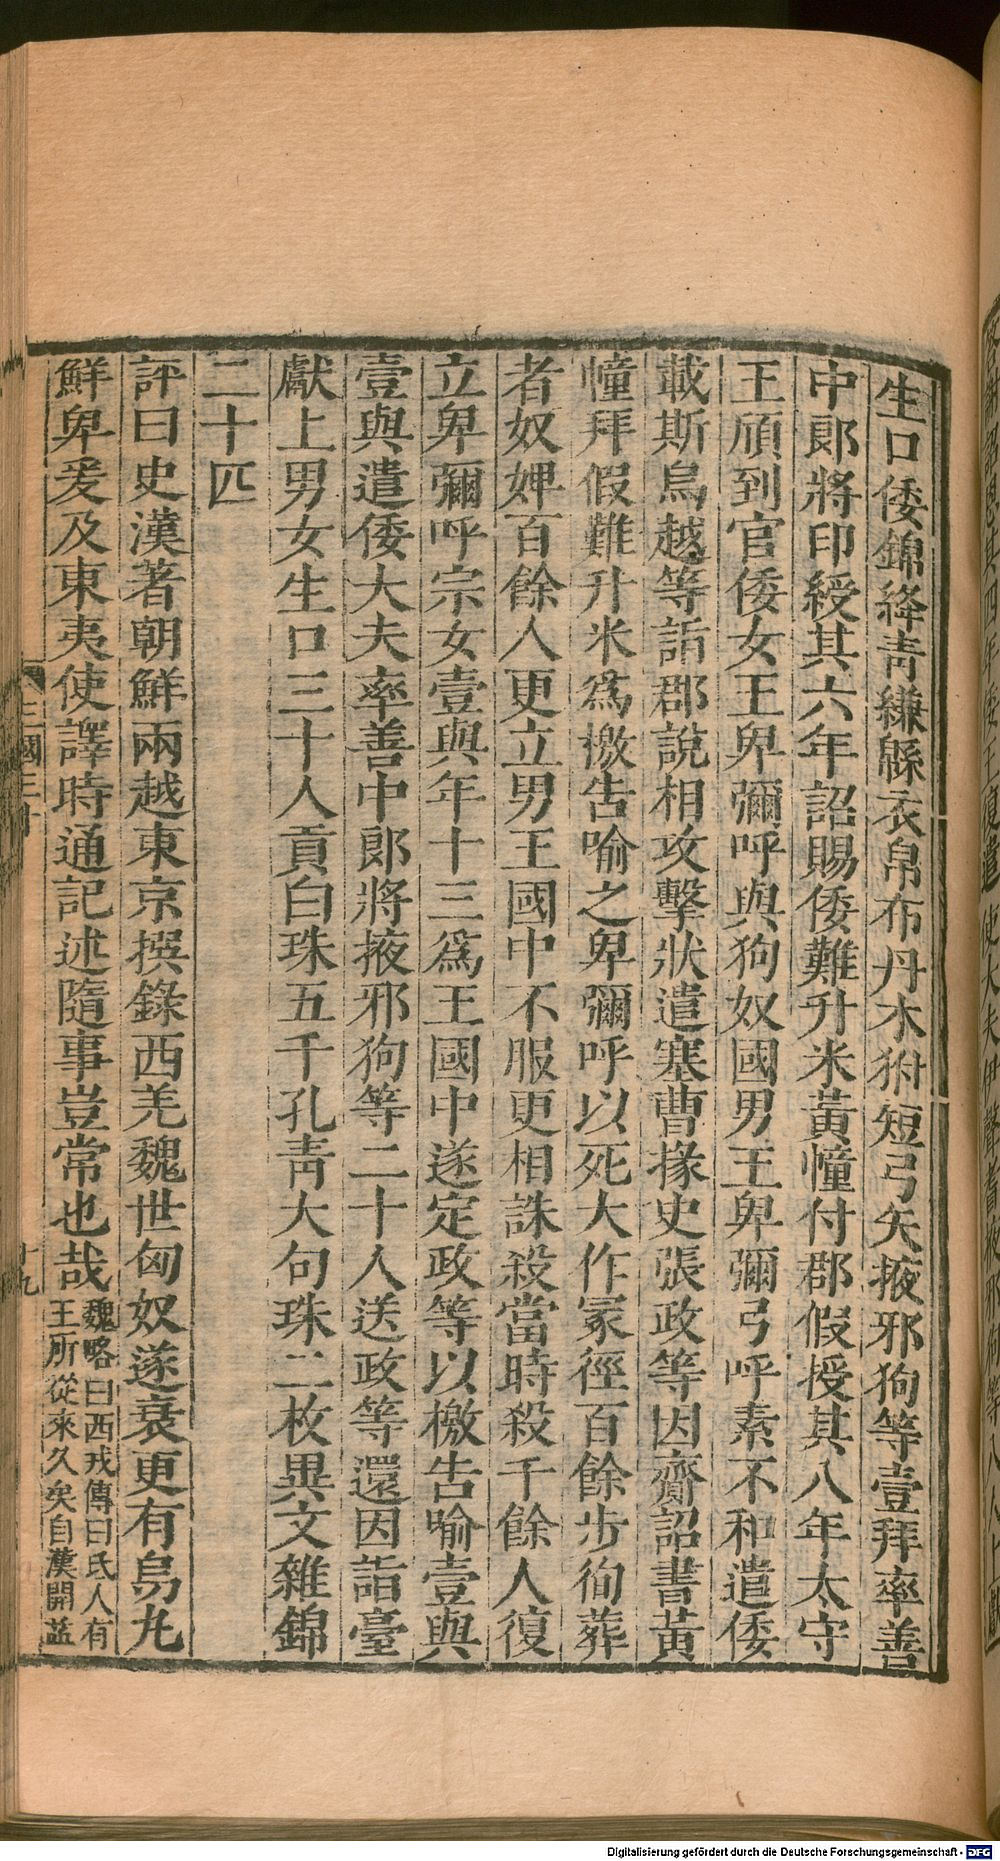 生口倭錦絳青縑緜衣帛布丹木𤝔短弓矢掖邪狗等壹拜率善
中郎將印綬其六年詔賜倭難升米黃幢付郡假授其八年太守
王頎到官倭女王卑彌呼與狗奴國男王卑彌弓呼素不和遣倭
載斯烏越等詣郡說相攻擊狀遣塞曹掾史張政等因齎詔書黃
幢拜假難升米爲檄告喻之卑彌呼以死大作冢徑百餘步徇葬
者奴婢百餘人更立男王國中不服更相誅殺當時殺千餘人復
立卑彌呼宗女壹與年十三爲王國中遂定政等以檄告喻壹與
壹與遣倭大夫率善中郎將掖邪狗等二十人送政等還因詣臺
獻上男女生口三十人貢白珠五千孔青大句珠二枚異文雜錦
二十匹
評曰史漢著朝鮮兩越東京撰錄西羌魏世匈奴遂衰更有烏丸
鮮卑爰及東夷使譯時通記述隨事豈常也哉
魏略曰西戎傳曰氐人有
王所從來久矣自漢開益
三國三十
十九
Digitalisierung gefördert durch die Deutsche Forschungsgemeinschaft - DFG